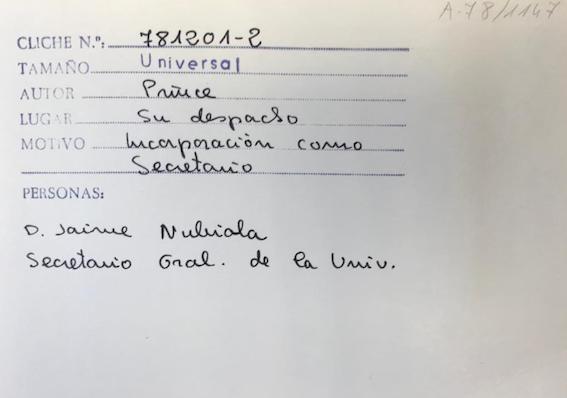 A-78/1147
CLICHE N.º: 781201-2
TAMAÑO Universal
AUTOR Prince
LUGAR Su despacho
MOTIVO Incorporación como
Secretario
PERSONAS:
D. Jaime Nubiola
Secretario Gral. de la Univ.